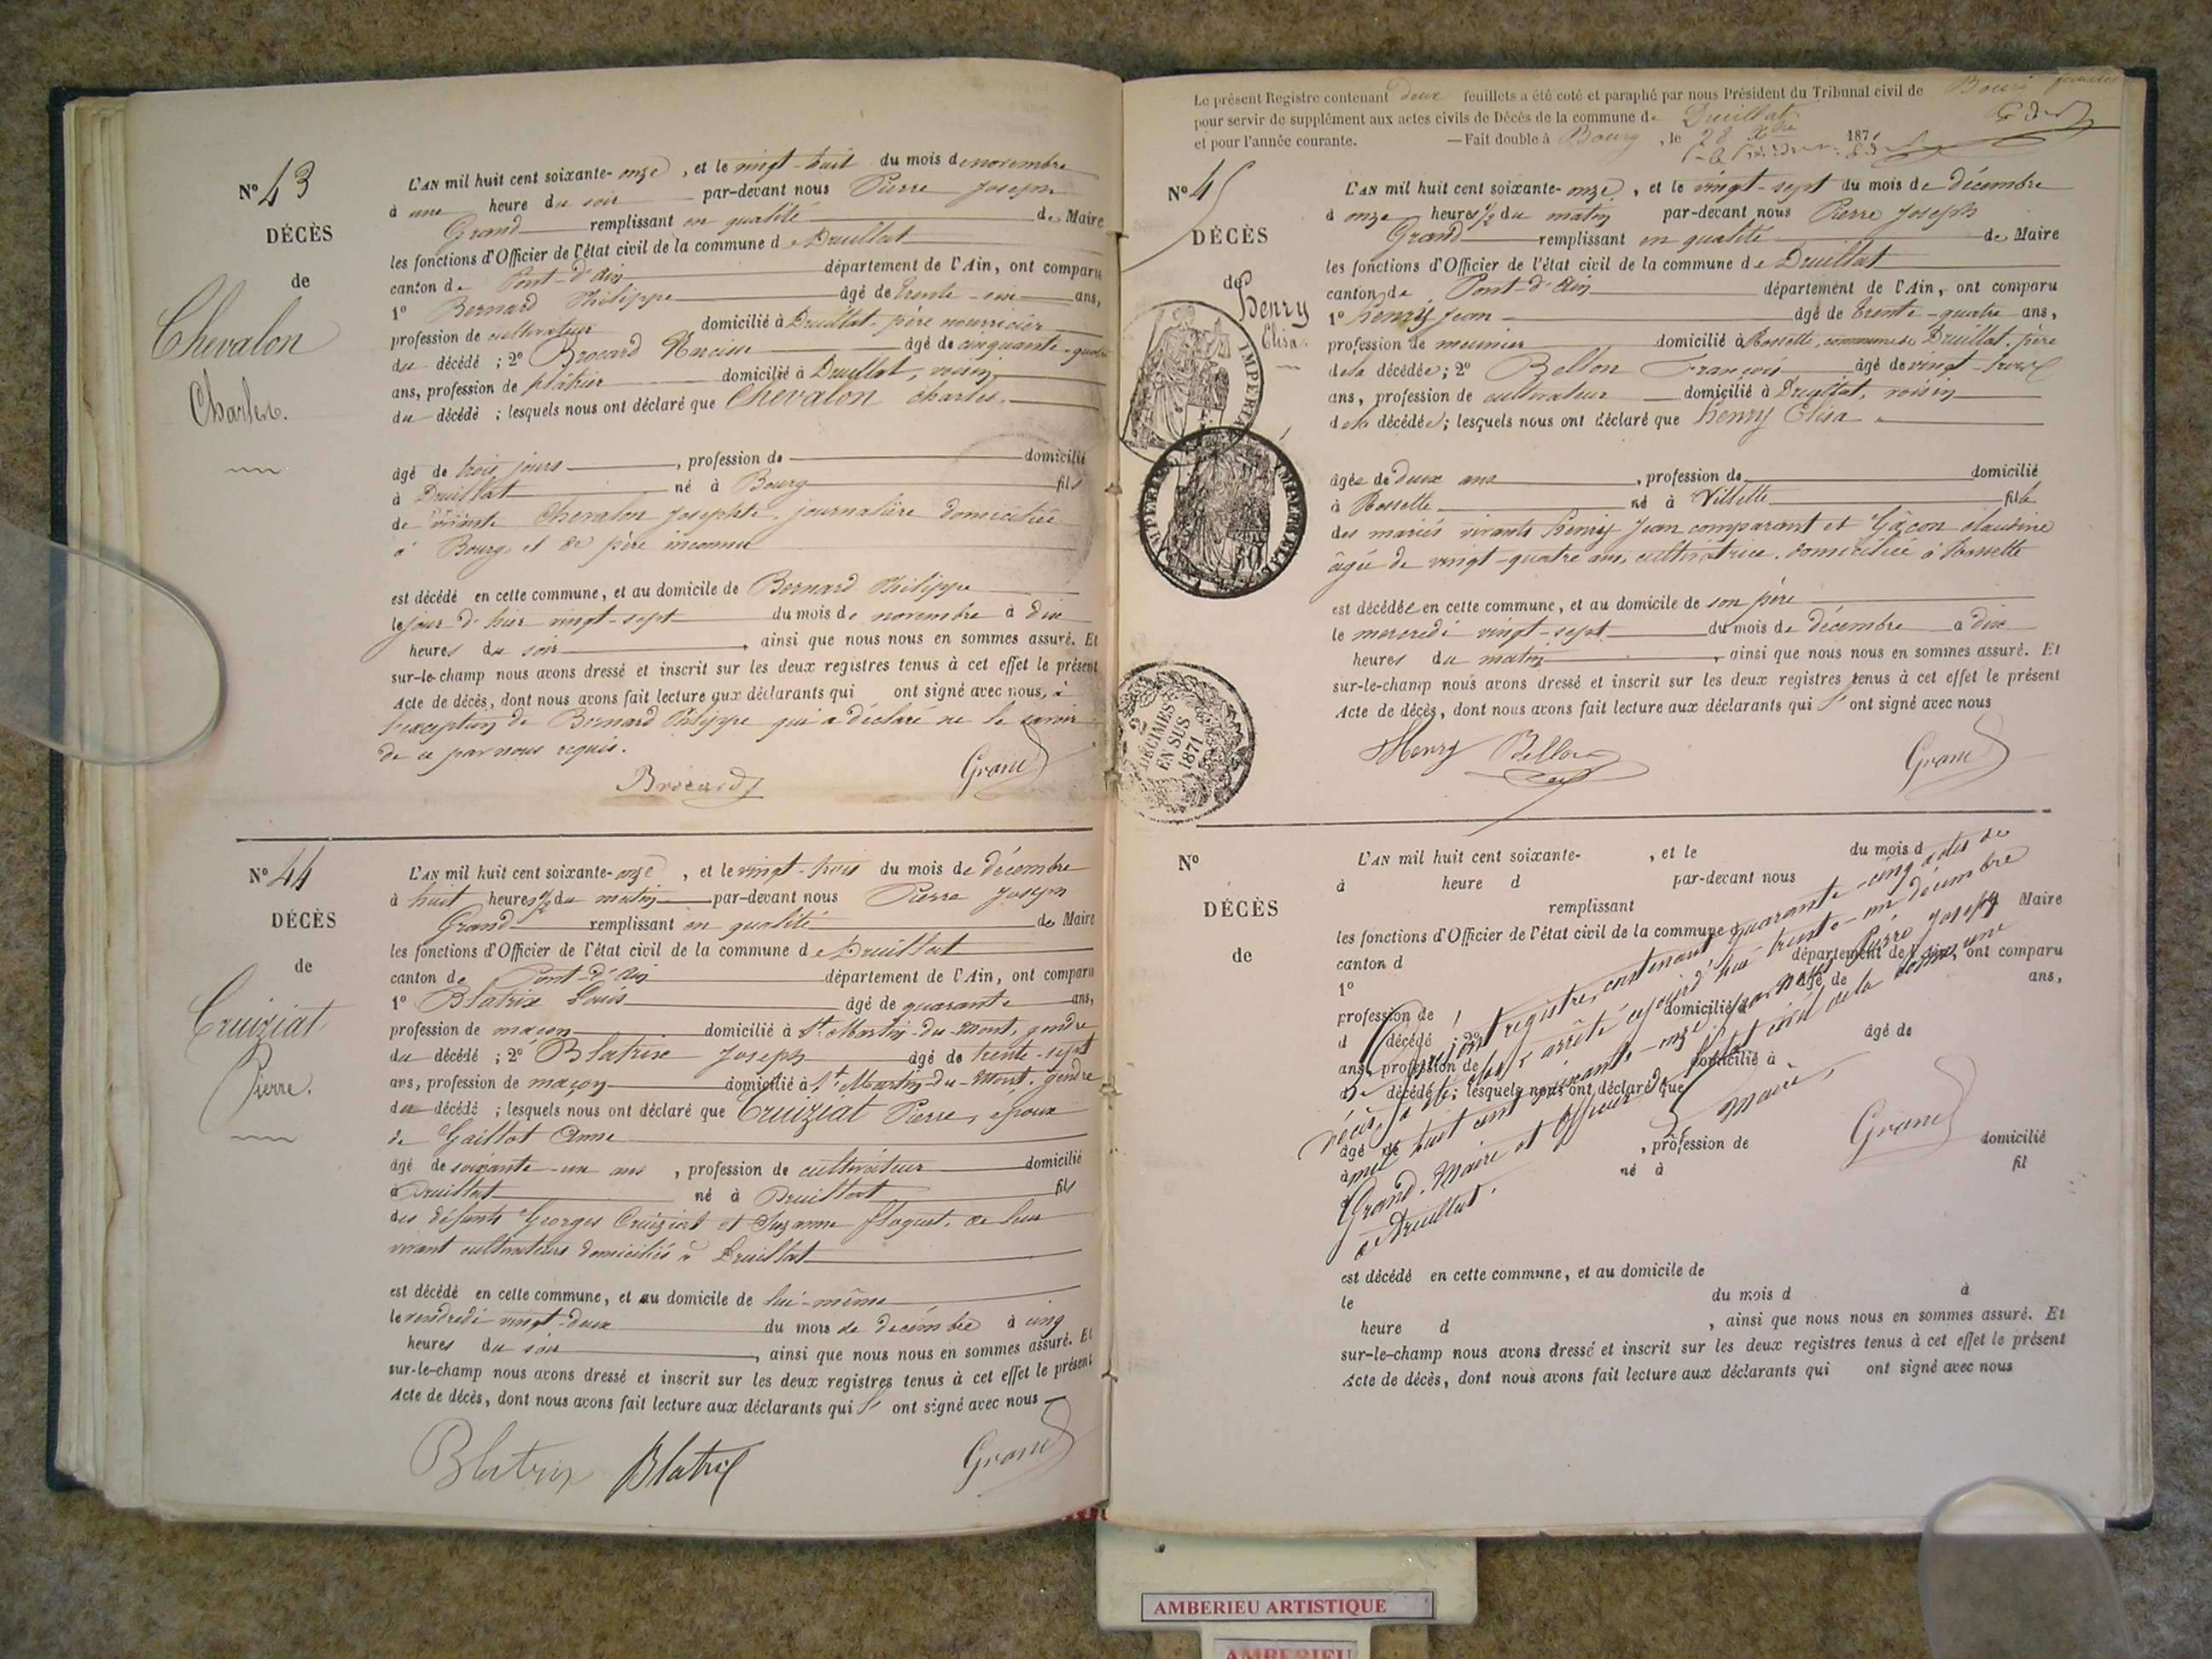 N° 43
DÉCÈS
de
Chevalon
Charles.
L'AN mil huit cent soixante-onze, et le vingt-huit du mois de novembre
à une heure du soir par-devant nous Pierre Joseph
Grand remplissant en qualité de Maire
les fonctions d'Officier de l'état civil de la commune de Druillat
canton de Pont-d'Ain département de l'Ain, ont comparu
1° Bernard Philippe âgé de trente-six ans,
profession de cultivateur domicilié à Druillat, père nourricier
du décédé ; 2° Brocard Narcisse âgé de cinquante-quatre
ans, profession de plâtrier domicilié à Druillat, voisin
du décédé ; lesquels nous ont déclaré que Chevalon Charles.
âgé de trois jours, profession de domicilié
à Druillat né à Bourg fils
de vivante Chevalon Josephte, journalière domiciliée
à Bourg et de père inconnu
est décédé en cette commune, et au domicile de Bernard Philippe
le jour d'hier vingt-sept du mois de novembre à dix
heures du soir, ainsi que nous nous en sommes assuré. Et
sur-le-champ nous avons dressé et inscrit sur les deux registres tenus à cet effet le présent
Acte de décès, dont nous avons fait lecture aux déclarants qui ont signé avec nous, à
l'exception de Bernard Philippe qui a déclaré ne le savoir
de ce par nous requis.
Brocard Grand
N° 44
DÉCÈS
de
Cruiziat
Pierre.
L'AN mil huit cent soixante-onze, et le vingt-trois du mois de décembre
à huit heures 1/2 du matin par-devant nous Pierre Joseph
Grand remplissant en qualité de Maire
les fonctions d'Officier de l'état civil de la commune de Druillat
canton de Pont-d'Ain département de l'Ain, ont comparu
1° Blatrix Louis âgé de quarante ans,
profession de maçon domicilié à St Martin-du-Mont, gendre
du décédé ; 2° Blatrix Joseph âgé de trente-sept
ans, profession de maçon domicilié à St Martin-du-Mont, gendre
du décédé ; lesquels nous ont déclaré que Cruiziat Pierre, époux
de Gaillot Anne
âgé de soixante-un ans, profession de cultivateur domicilié
à Druillat né à Druillat fils
des défunts Georges Cruiziat et Suzanne de leur
vivant cultivateurs domiciliés à Druillat
est décédé en cette commune, et au domicile de lui-même
le vendredi vingt-deux du mois de décembre à cinq
heures du soir, ainsi que nous nous en sommes assuré. Et
sur-le-champ nous avons dressé et inscrit sur les deux registres tenus à cet effet le présent
Acte de décès, dont nous avons fait lecture aux déclarants qui ont signé avec nous
Blatrix Blatrix Grand
Le présent Registre contenant deux feuillets a été coté et paraphé par nous Président du Tribunal civil de Bourg
pour servir de supplément aux actes civils de Décès de la commune de Druillat
et pour l'année courante. — Fait double à Bourg, le 28 Xbre 1871
N° 45
DÉCÈS
de Henry
Elisa.
IMPERIAL
2 DÉCIMES EN SUS 1871
L'AN mil huit cent soixante-onze, et le vingt-sept du mois de décembre
à onze heures 1/2 du matin par-devant nous Pierre Joseph
Grand remplissant en qualité de Maire
les fonctions d'Officier de l'état civil de la commune de Druillat
canton de Pont-d'Ain département de l'Ain, ont comparu
1° henry Jean âgé de trente-quatre ans,
profession de meunier domicilié à Rossette, commune de Druillat, père
de la décédée ; 2° Bellon François âgé de vingt-trois
ans, profession de cultivateur domicilié à Druillat, voisin
de la décédée ; lesquels nous ont déclaré que henry Elisa
âgée de deux ans, profession de domicilié
à Rossette né à Villette fille
des mariés vivants henry Jean comparant et Gâcon claudine
âgée de vingt-quatre ans, cultivatrice, domiciliée à Rossette
est décédée en cette commune, et au domicile de son père
le mercredi vingt-sept du mois de décembre à dix
heures du matin, ainsi que nous nous en sommes assuré. Et
sur-le-champ nous avons dressé et inscrit sur les deux registres tenus à cet effet le présent
Acte de décès, dont nous avons fait lecture aux déclarants qui ont signé avec nous
Henry Bellon Grand
N°
DÉCÈS
de
L'AN mil huit cent soixante- , et le du mois d
à heure d par-devant nous
remplissant Maire
les fonctions d'Officier de l'état civil de la commune d
canton d département de l'Ain, ont comparu
1° âgé de ans,
profession de domicilié à
d décédé ; 2° âgé de
ans, profession de domicilié à
d décédé ; lesquels nous ont déclaré que
âgé de , profession de domicilié
à né à fil
Le présent registre, contenant quarante-cinq actes de
décès, a été clos & arrêté cejourd'hui trente-un décembre
mil huit cent soixante-onze, par nous Pierre Joseph
Grand, Maire et officier de l'état civil de la commune
de Druillat.
Maire,
Grand
est décédé en cette commune, et au domicile de
le du mois d à
heure d , ainsi que nous nous en sommes assuré. Et
sur-le-champ nous avons dressé et inscrit sur les deux registres tenus à cet effet le présent
Acte de décès, dont nous avons fait lecture aux déclarants qui ont signé avec nous
AMBERIEU ARTISTIQUE
AMBERIEU